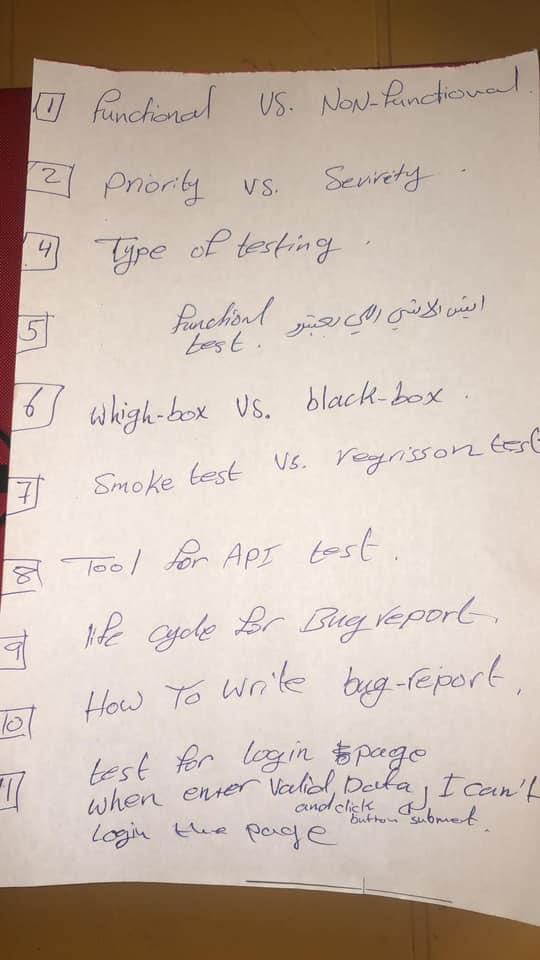 1 Functional VS. NON-functional.
2 Priority vs. Sevirety.
4 Type of testing.
5 functionl ايش الاشي اللي يعتبر
test.
6 whigh-box VS. black-box.
7 Smoke test vs. regrisson test
8 Tool for API test.
9 life cycle for Bug report.
10 How To write bug-report.
11 test for login page
when enter Valid Data, I can't
and click
button submet.
Login the page